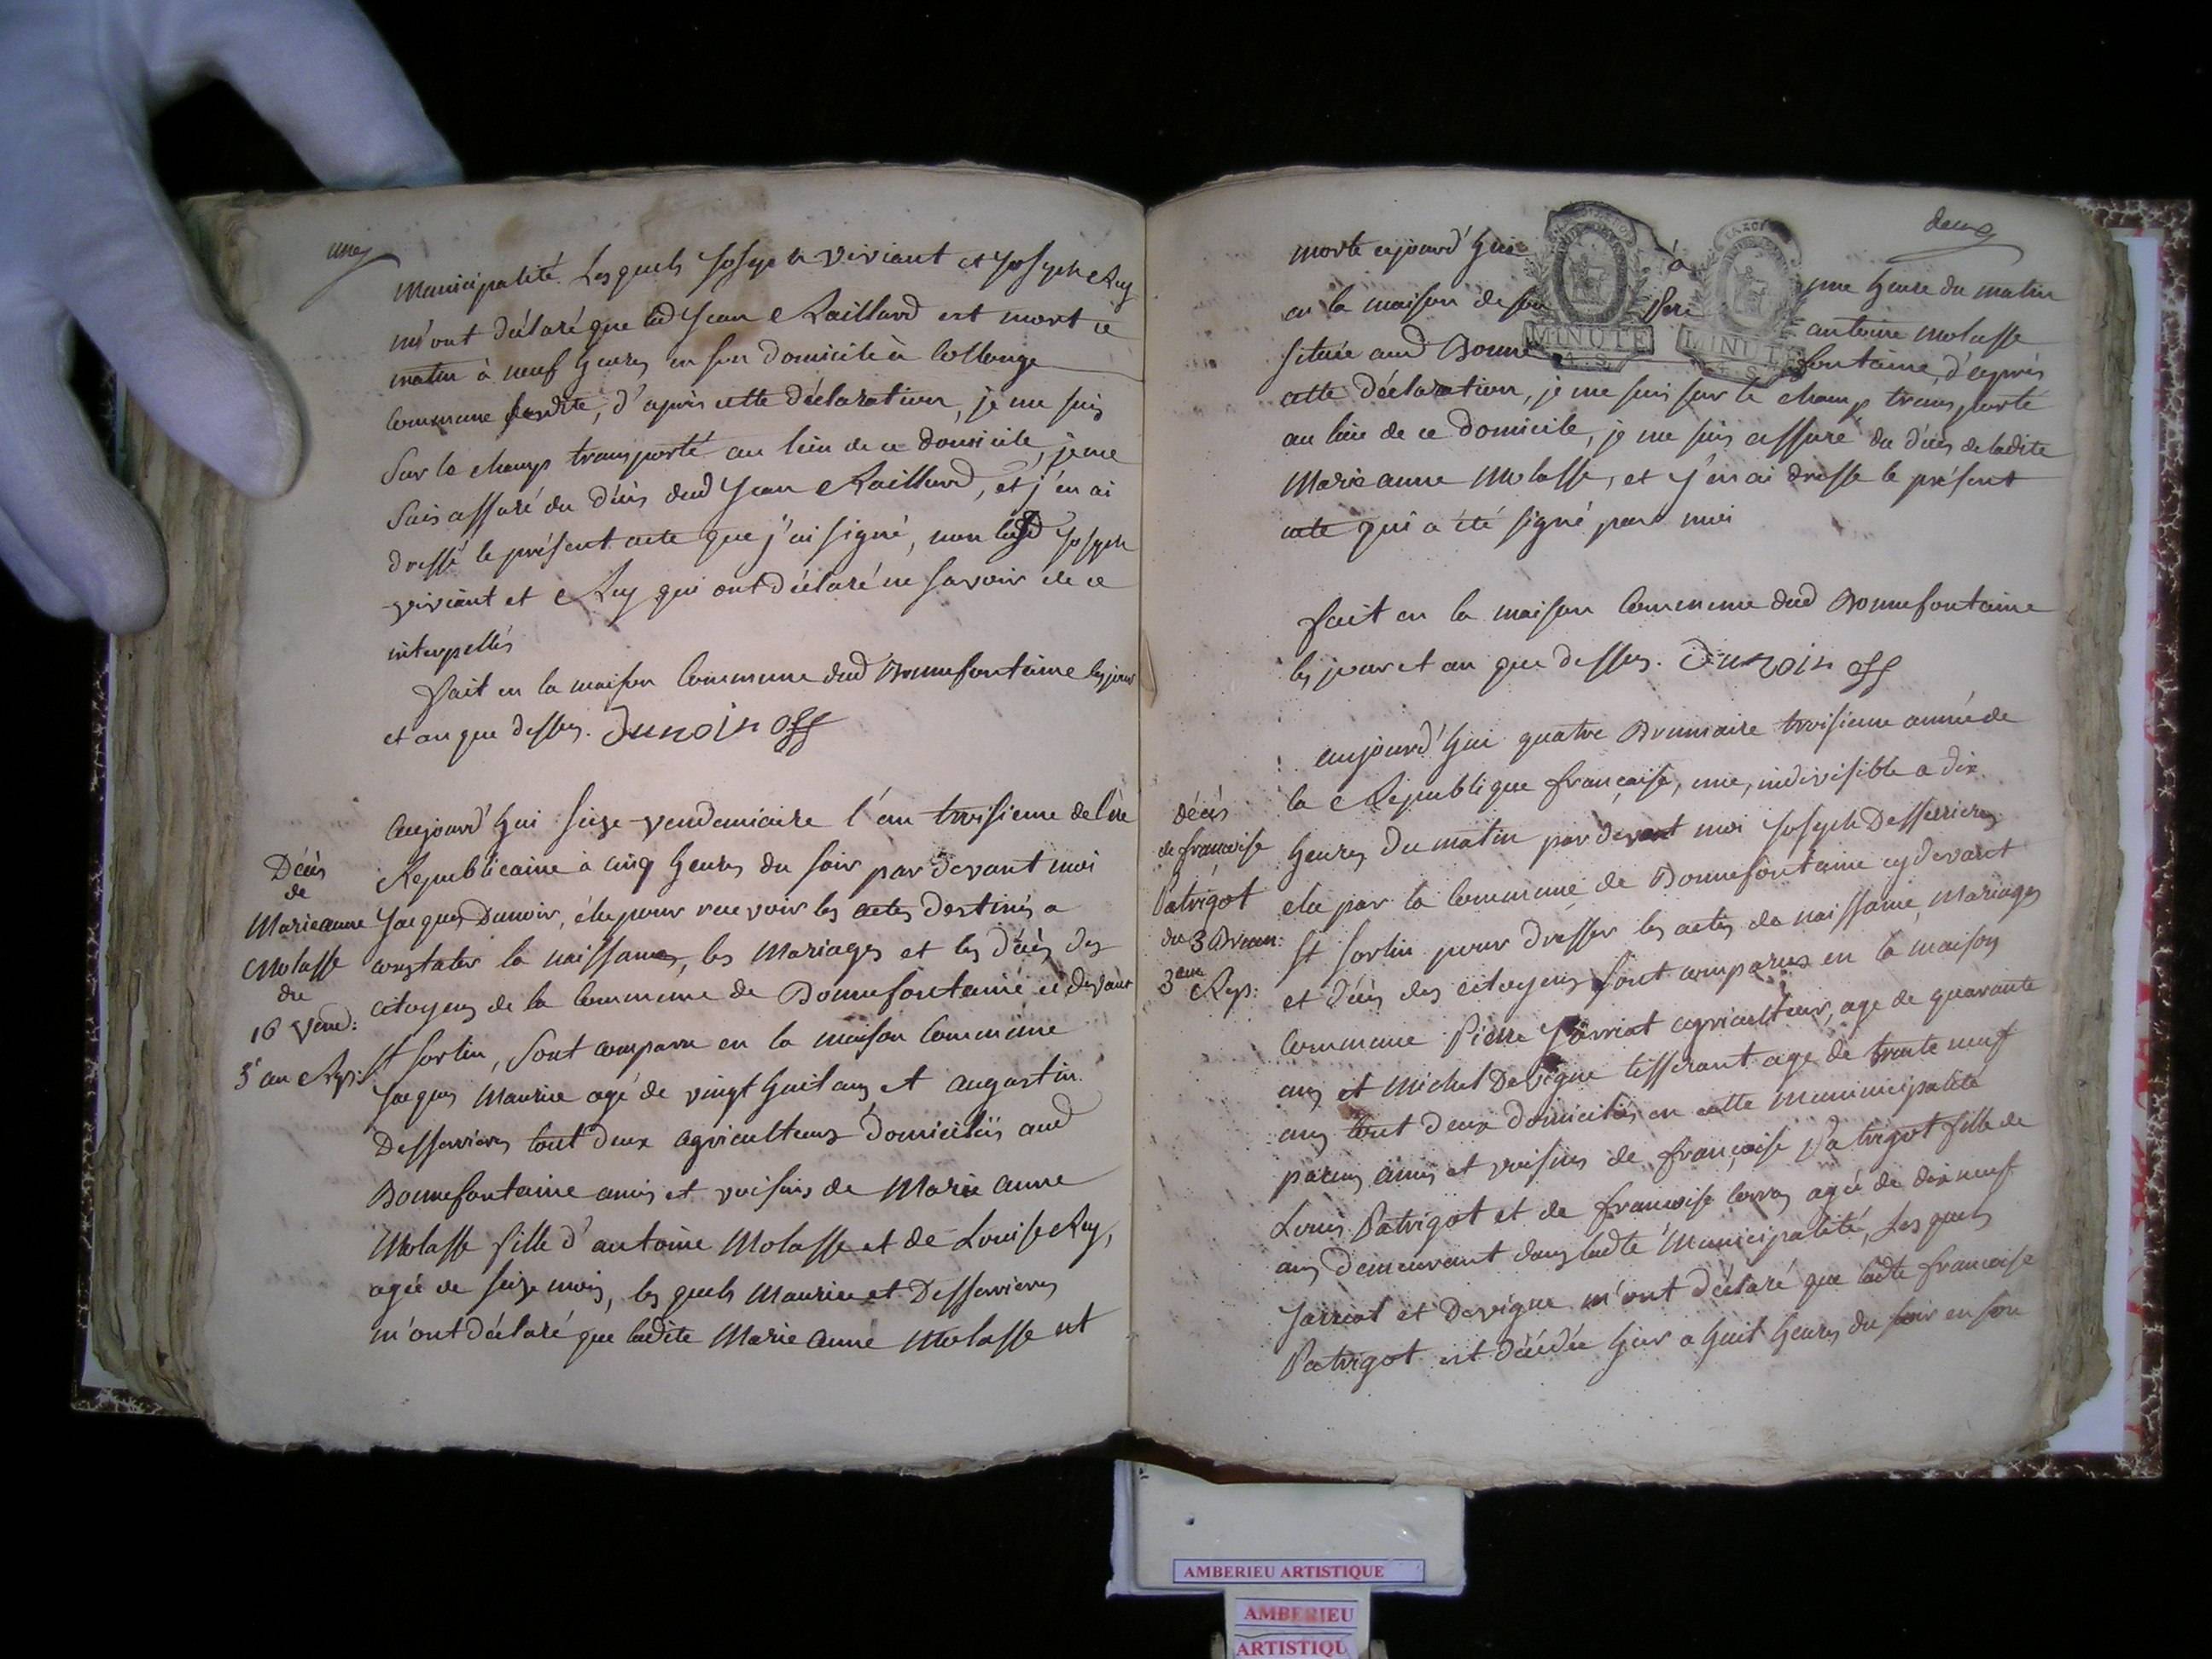 une
Municipalité. Les quels Joseph viviant et Joseph Ruy
m'ont déclaré que led Jean Raillard est mort ce
matin à neuf heures en son domicile à Collonge
Commune susdite, d'après cette déclaration, je me suis
Sur le champ transporté au lieu de ce domicile, je me
Suis assuré du décès dud Jean Raillard, et j'en ai
dressé le présent acte que j'ai signé, non lesd Joseph
viviant et Ruy qui ont déclaré ne savoir de ce
interpellés
fait en la maison Commune dud Bonnefontaine les jour
et an que dessus. Dunoir off
Décès
de
Marieanne
Molasse
du
16 vend:
3e an Rep:
Aujourd'hui seize vendemiaire l'an troisieme de l'ère
Republicaine à cinq heures du soir par devant moi
Jacques Dunoir, élu pour recevoir les actes destinés a
constater la naissances, les Mariages et les décès des
citoyens de la Commune de Bonnefontaine ci devant
St Sorlin, sont comparu en la maison Commune
Jacques Maurice agé de vingt huit ans et augustin
Desserrieres tout deux agriculteurs domiciliés aud
Bonnefontaine amis et voisins de Marie anne
Molasse fille d'antoine Molasse et de Louise Ruy,
agée de seize mois, les quels Maurice et Desserrieres
m'ont déclaré que ladite Marie Anne Molasse est
deux
morte aujourd'hui à une heure du matin
en la maison de son Pere antoine Molasse
située aud Bonne fontaine, d'après
cette déclaration, je me suis sur le champ transporté
au lieu de ce domicile, je me suis assuré du décès de ladite
Marie anne Molasse, et j'en ai dressé le présent
acte qui a été signé par moi
fait en la maison Commune dud Bonnefontaine
les jour et an que dessus. Dunoir off
décès
de francoise
Patrigot
du 3 Brum:
3eme Rep:
aujourd'hui quatre Brumaire troisieme année de
la Republique française, une, indivisible a dix
heures du matin par devant moi Joseph Desserrieres
elu par la Commune de Bonnefontaine cy devant
St Sorlin pour dresser les actes de naissance, Mariages
et décès des citoyens sont comparus en la maison
Commune Pierre Jarriot agriculteur, age de quarante
ans et Michel Devigne tisserant age de trente neuf
ans tout deux domiciliés en cette Munimicipalité
parens amis et voisins de françoise Patrigot fille de
Louis Patrigot et de francoise agée de dix neuf
ans demeurant dans ladte Municipalité, Les quels
Jarriot et Devigne m'ont déclaré que ladte francoise
Patrigot est décédée hier a huit heures du soir en son
MINUTE
A. S.
MINUTE
AMBERIEU ARTISTIQUE
AMBERIEU
ARTISTIQU